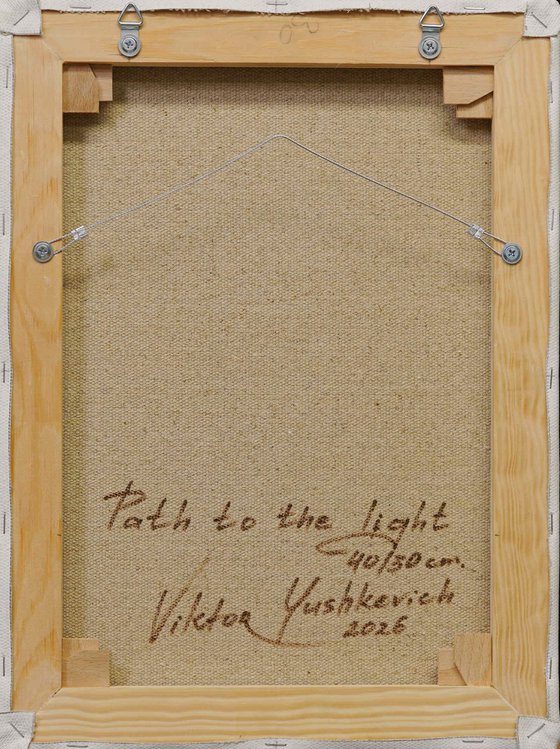 Path to the light
40/30 cm.
Viktor Yushkevich
2026